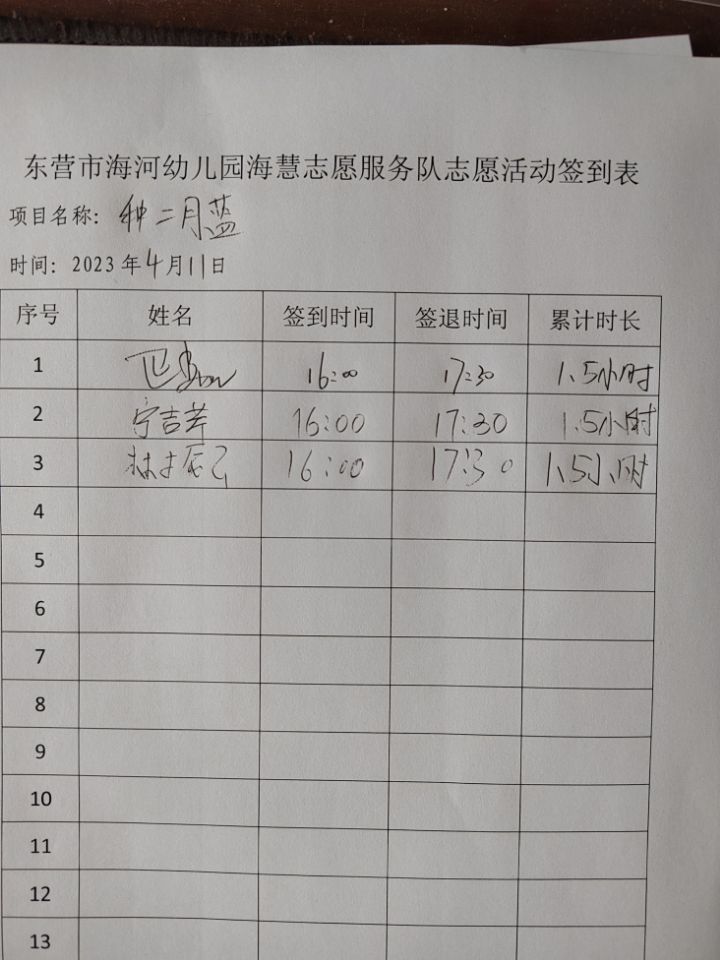 东营市海河幼儿园海慧志愿服务队志愿活动签到表
项目名称：种二月蓝
时间：2023年4月11日
序号 姓名 签到时间 签退时间 累计时长
1 16:00 17:30 1.5小时
2 宁吉芹 16:00 17:30 1.5小时
3 16:00 17:30 1.5小时
4
5
6
7
8
9
10
11
12
13